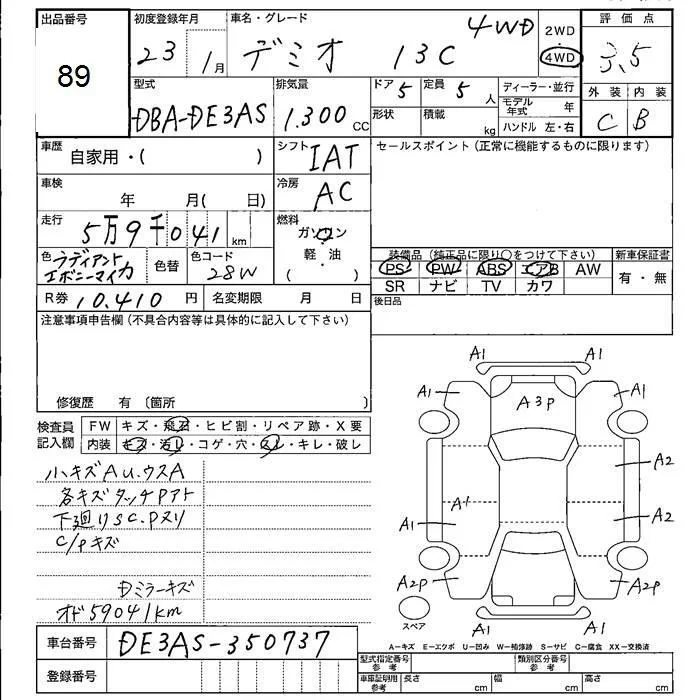 出品番号 初度登録年月 車名・グレード 評価点
89
23 1月 デミオ 13C 4WD
2WD
4WD
3.5
型式 排気量 ドア 5 定員 5人 ディーラー・並行 外装 内装
DBA-DE3AS 1.300 CC
形状 積載 kg モデル年式 年
ハンドル 左・右
C B
車歴 自家用・( ) シフト IAT セールスポイント(正常に機能するものに限ります)
車検 年 月( 日) 冷房 AC
走行 5万9千041 km 燃料 ガソリン
軽・油
( )
色 ラディアント
エボニーマイカ 色替 色コード 28W
装備品(純正品に限り○をつけて下さい) 新車保証書
PS PW ABS エアB AW 有・無
SR ナビ TV カワ
R券 10.410 円 名変期限 月 日 後日品
注意事項申告欄(不具合内容等は具体的に記入して下さい)
修復歴 有 〔箇所 )
検査員
記入欄
FW キズ・飛石・ヒビ割・リペア跡・X要
内装 キズ・汚レ・コゲ・穴・スレ・キレ・破レ
ハ.キズAU.ウスA
各キズタッチPアト
下廻りSC.Pヌリ
C/Pキズ
Dミラーキズ
オド59041km
A1 A1
A1 A1
A3P
A2
A1 A1 A2
A2P A2P
スペア
A1 A1
A-キズ E-エクボ U-凹み W-補修跡 S-サビ C-腐食 XX-交換済
車台番号 DE3AS-350737
登録番号
型式指定番号 参考 類別区分番号 参考
車庫証明用 参考 長さ cm 幅 cm 高さ cm